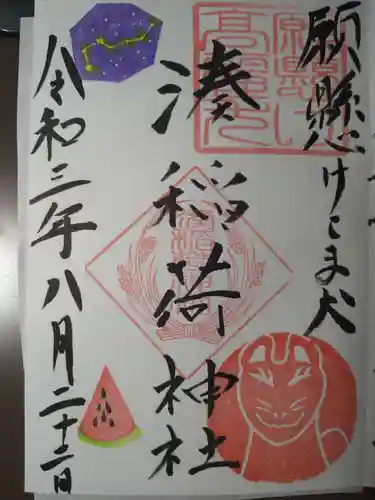 願懸けこま犬
湊稲荷神社
令和三年八月二十二日